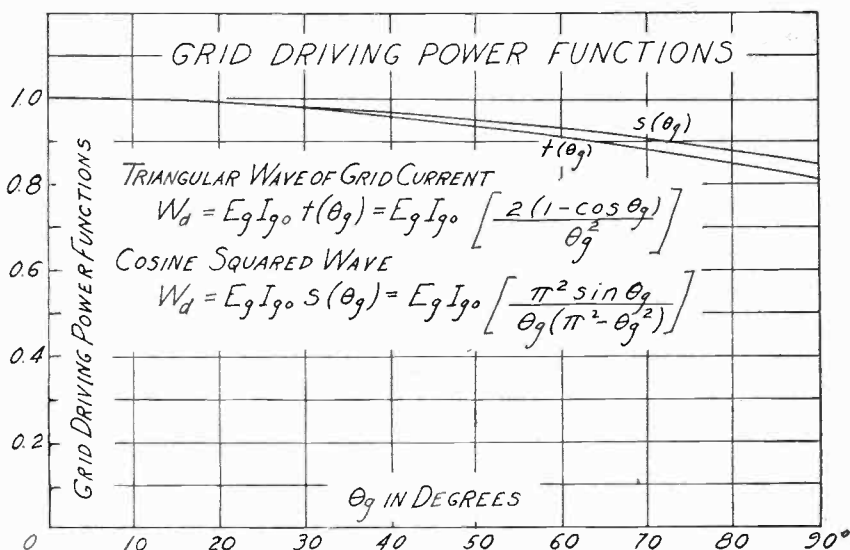 GRID DRIVING POWER FUNCTIONS
1.0
0.8
0.6
0.4
0.2
0
GRID DRIVING POWER FUNCTIONS
s(θg)
t(θg)
TRIANGULAR WAVE OF GRID CURRENT
Wd = Eg Igo t(θg) = Eg Igo [2(1-cos θg) / θg²]
COSINE SQUARED WAVE
Wd = Eg Igo s(θg) = Eg Igo [π² sin θg / θg(π²-θg²)]
θg IN DEGREES
10 20 30 40 50 60 70 80 90°